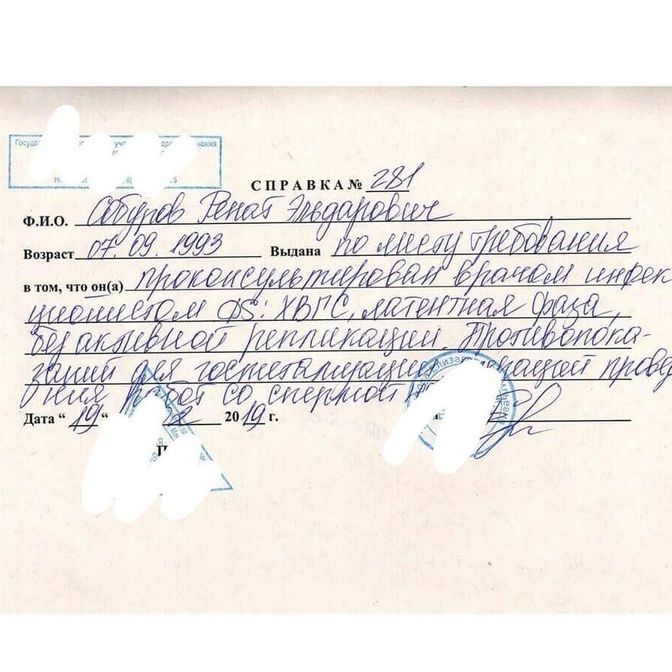 Государ учре здра нения
СПРАВКА № 281
Ф.И.О. Собуров Ренат Эльдарович
Возраст 07.09.1993 Выдана по месту требования
в том, что он(а) проконсультирован врачом инфек
ционистом DS: ХВГС, латентная фаза,
без активной репликации. Противопока-
заний для госпитализации
ния работ со спермой нет
Дата “ 19 “ 2 2019 г.